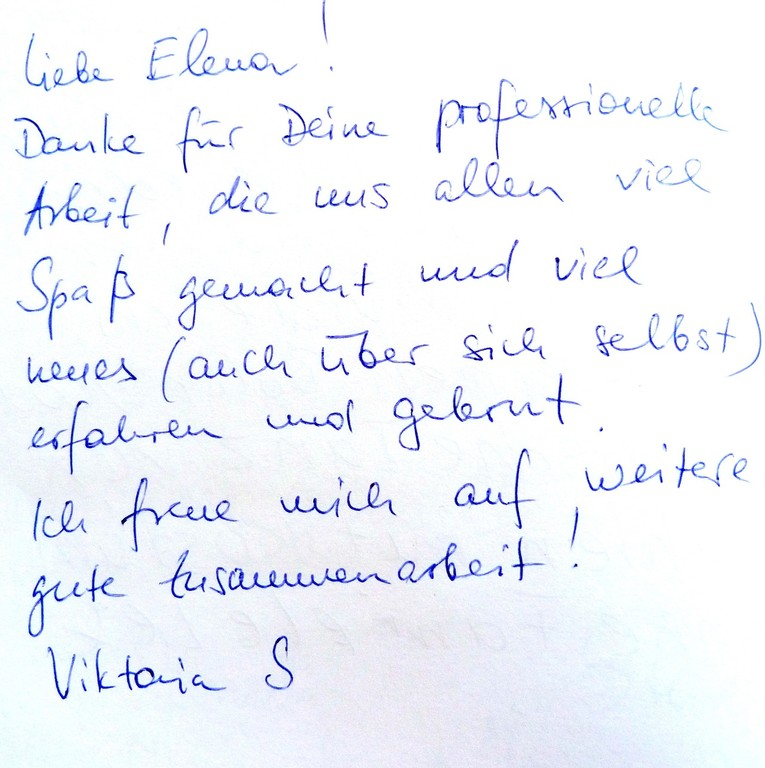 Liebe Elena!
Danke für Deine professionelle
Arbeit, die uns allen viel
Spaß gemacht und viel
neues (auch über sich selbst)
erfahren und gelernt.
Ich freue mich auf weitere
gute Zusammenarbeit!
Viktoria S